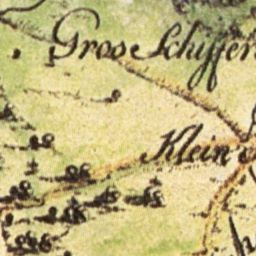 Gros Schiffer
Klein